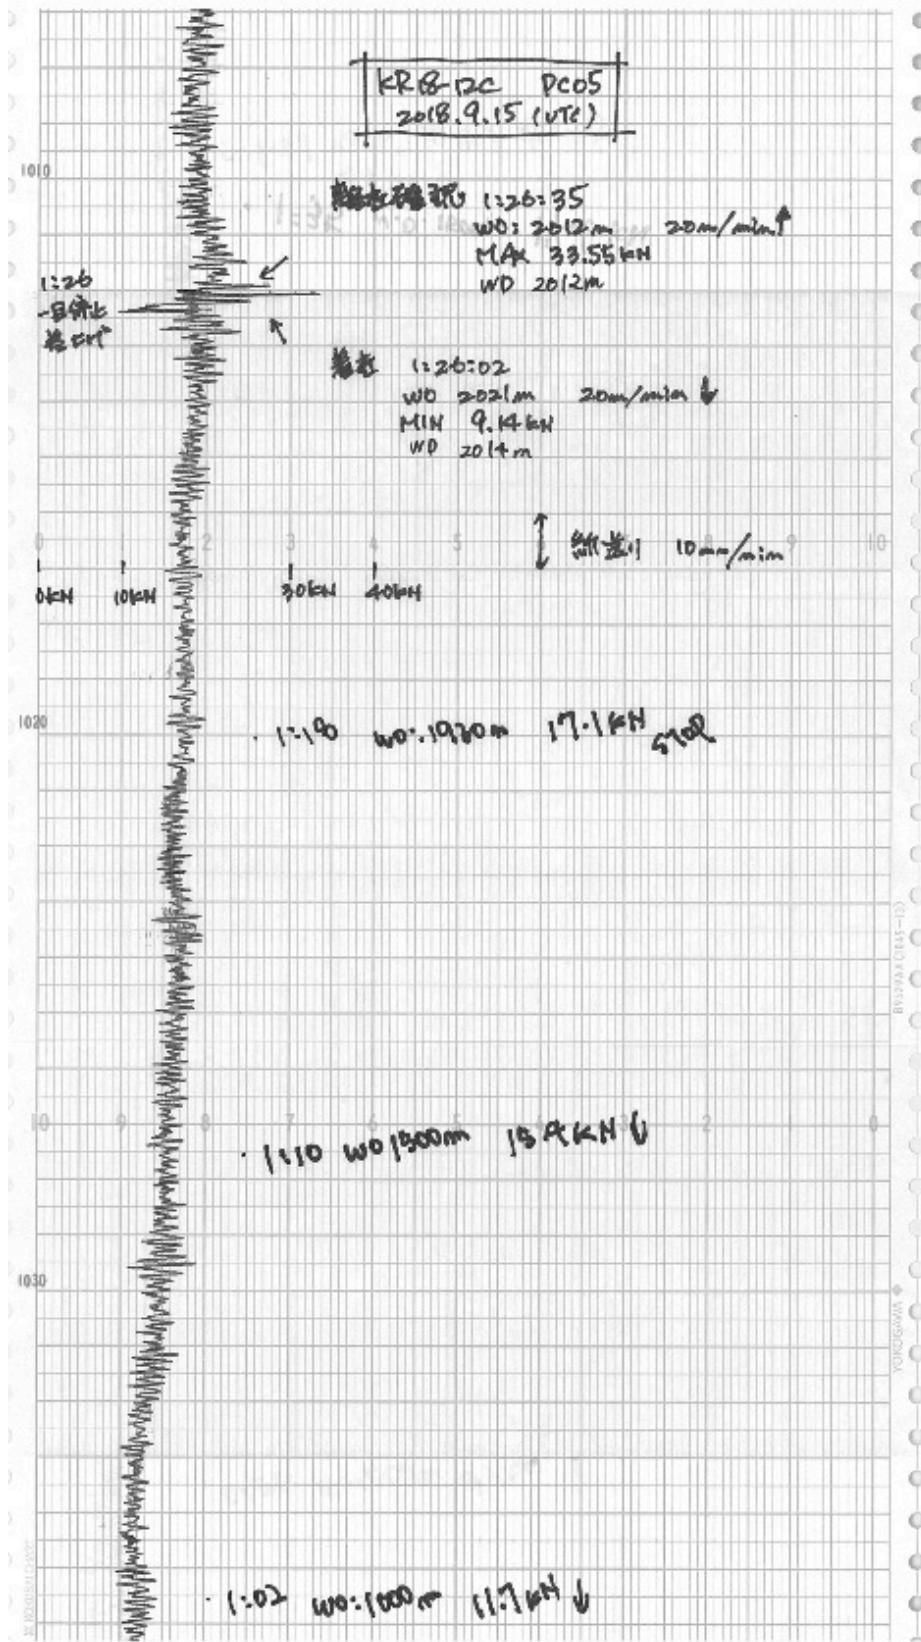 KR18-12C PC05
2018.9.15 (UTC)
1010
離底確認 1:26:35
WO: 2012m 20m/min ↑
MAX 33.55kN
WD 2012m
1:26
一旦停止
着底 1:26:02
WO 2021m 20m/min ↓
MIN 9.14kN
WD 2014m
0 2 3 4 5 9 10
↕ 紙送り 10mm/min
0kN 10kN 30kN 40kN
1020
WO:1920m 17.1kN STOP
10 9 8 7 6 5 2 0
· 1:10 WO 1500m 15.4kN ↓
1030
YOKOGAWA ◆
· 1:02 WO:1000m 11.7kN ↓